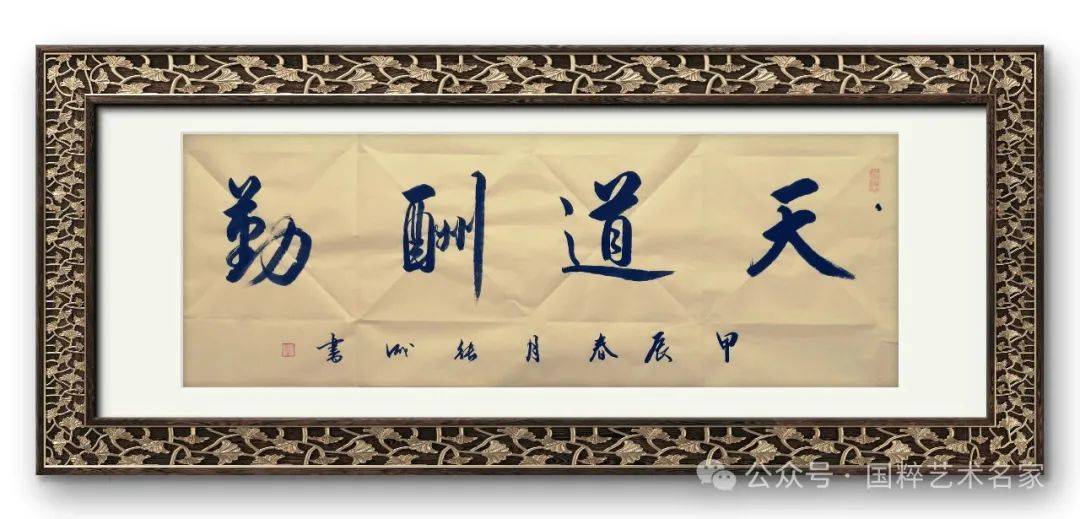 天道酬勤
甲辰春月 书
公众号 · 国粹艺术名家